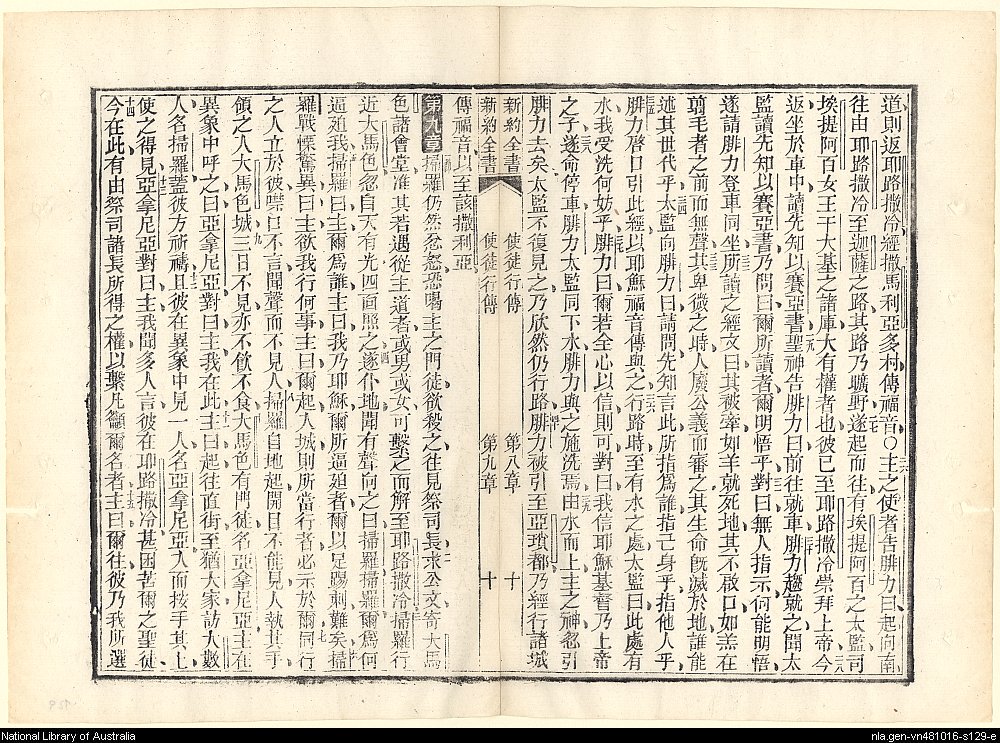 道則返耶路撒冷經撒馬利亞多村傳福音○主之使者告腓力曰起向南
往由耶路撒冷至迦薩之路其路乃曠野遂起而往有埃提阿百之太監司
埃提阿百女王干大基之諸庫大有權者也彼已至耶路撒冷崇拜上帝今
返坐於車中讀先知以賽亞書聖神告腓力曰前往就車腓力趨就之聞太
監讀先知以賽亞書乃問曰爾所讀者爾明悟乎對曰無人指示何能明悟
遂請腓力登車同坐所讀之經文曰其被牽如羊就死地其不啟口如羔在
翦毛者之前而無聲其卑微之時人廢公義而審之其生命既滅於地誰能
述其世代乎太監向腓力曰請問先知言此所指為誰指己身乎指他人乎
腓力啓口引此經以耶穌福音傳與之行路時至有水之處太監曰此處有
水我受洗何妨乎腓力曰爾若全心以信則可對曰我信耶穌基督乃上帝
之子遂命停車腓力太監同下水腓力與之施洗焉由水而上主之神忽引
腓力去矣太監不復見之乃欣然仍行路腓力被引至亞瑣都乃經行諸城
新約全書 使徒行傳 第八章 十
新約全書 使徒行傳 第九章 十
傳福音以至該撒利亞
第九章 掃羅仍然忿怒恐嚇主之門徒欲殺之往見祭司長求公文寄大馬
色諸會堂准其若遇從主道者或男或女可繫之而解至耶路撒冷掃羅行
近大馬色忽自天有光四面照之遂仆地聞有聲向之曰掃羅掃羅爾為何
逼迫我掃羅曰主爾為誰主曰我乃耶穌爾所逼迫者爾以足踢刺難矣掃
羅戰慄驚異曰主欲我行何事主曰爾起入城則所當行者必示於爾同行
之人立於彼噤口不言聞聲而不見人掃羅自地起開目不能見人執其手
領之入大馬色城三日不見亦不飲不食大馬色有門徒名亞拿尼亞主在
異象中呼之曰亞拿尼亞對曰主我在此主曰起往直街至猶大家訪大數
人名掃羅蓋彼方祈禱且彼在異象中見一人名亞拿尼亞入而按手其上
使之得見亞拿尼亞對曰主我聞多人言彼在耶路撒冷甚困苦爾之聖徒
今在此有由祭司諸長所得之權以繫凡籲爾名者主曰爾往彼乃我所選
National Library of Australia
nla.gen-vn481016-s129-e